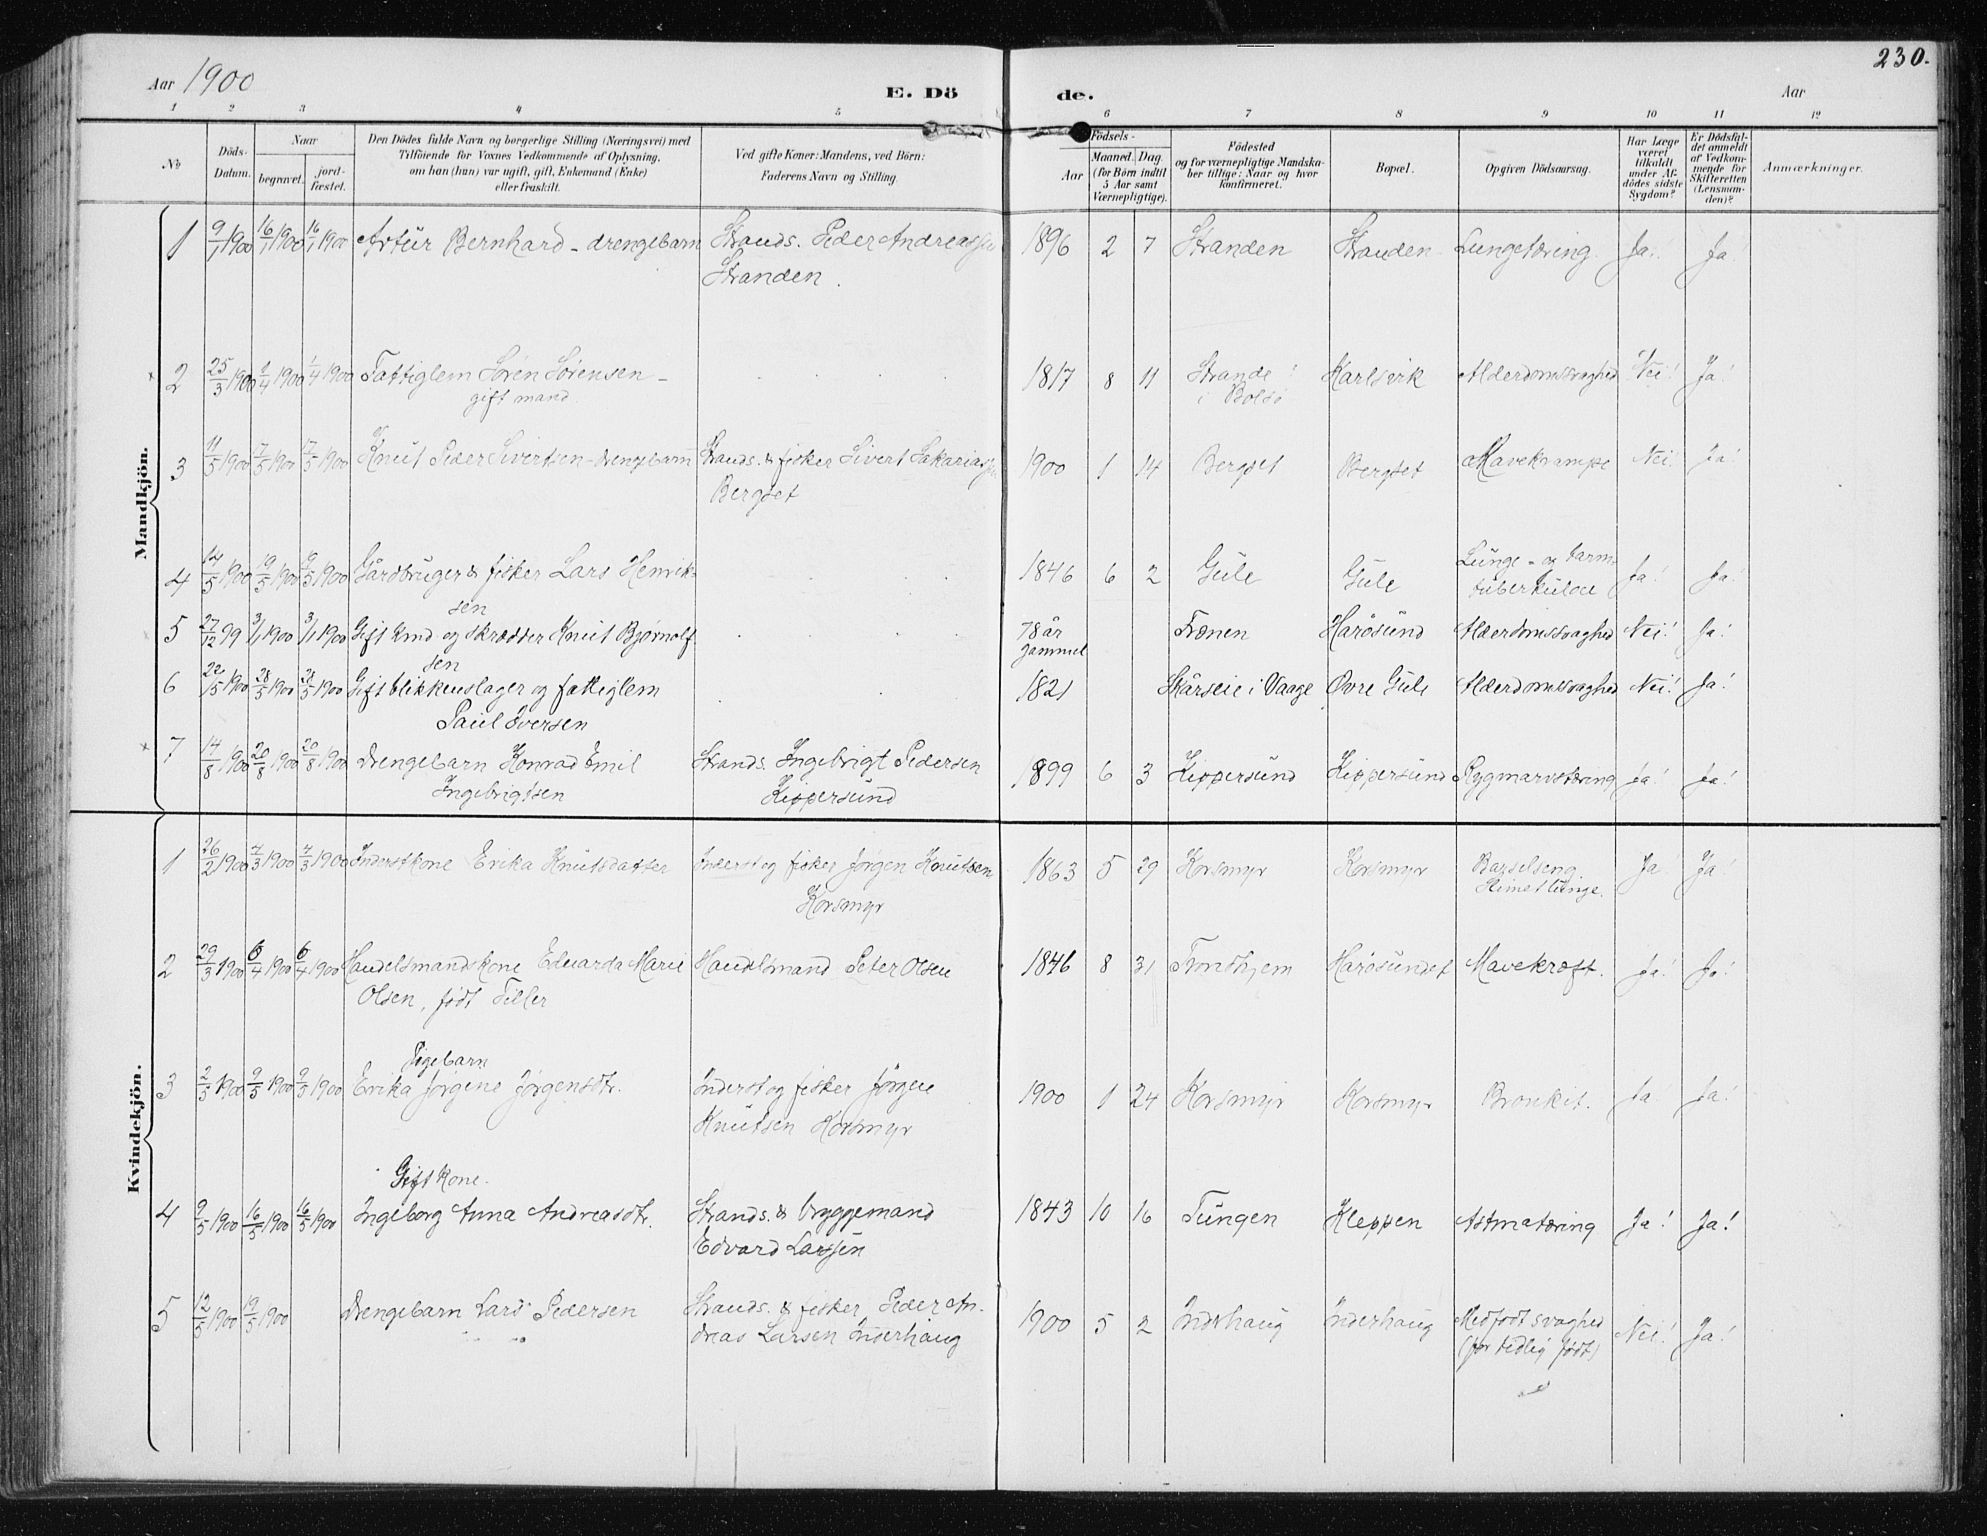 Aar 1900 E. Döde. Aar 230.
1 2 3 4 5 6 7 8 9 10 11 12
No Döds-Datum. Naar begravet. jordfæstet. Den Dödes fulde Navn og borgerlige Stilling (Næringsvei) med Tilföiende for Voxnes Vedkommende af Oplysning, om han (hun) var ugift, gift, Enkemand (Enke) eller fraskilt. Ved gifte Koner: Mandens, ved Börn: Faderens Navn og Stilling. Födsels- Aar Maaned. Dag. (for Börn indtil 5 Aar samt Værnepligtige). Födested og for værnepligtige Mandskaber tillige: Naar og hvor konfirmeret. Bopæl. Opgiven Dödsaarsag. Har Læge været tilkaldt under Afdödes sidste Sygdom? Er Dödsfaldet anmeldt af Vedkommende for Skifteretten (Lensmanden)? Anmærkninger.
Mandkjön.
1 9/1 1900 16/1 1900 16/1 1900 Artur Bernhard - drengebarn Strands. Peder Andreassen 1896 2 7 Stranden Stranden Lungetæring. Ja! Ja!
Stranden.
2 25/3 1900 1/4 1900 1/4 1900 Fattiglem Søren Sørensen - 1817 8 11 Strande Karlsvik Alderdomssvaghed Nei! Ja!
gift mand. i Bolsö
3 11/5 1900 17/5 1900 17/5 1900 Knut Peder Sivertsen - drengebarn Strands. & fisker Sivert Sakariassen 1900 1 14 Bergset Bergset Mavekrampe Nei! Ja!
Bergset
4 14/5 1900 19/5 1900 19/5 1900 Gårdbruger & fisker Lars Henrik- 1846 6 2 Gule Gule Lunge- og tarm- Ja! Ja!
sen tuberkulose
5 27/12 99 3/1 1900 3/1 1900 Gift kmd og skrædder Knut Bjørnolf 78 år Frænen Harösund Alderdomssvaghed Nei! Ja!
sen gammel
6 22/5 1900 28/5 1900 28/5 1900 Gift blikkenslager og fattiglem 1821 Skårseie i Vaage Øvre Gule Alderdomssvaghed Nei! Ja!
Paul Iversen
7 14/8 1900 20/8 1900 20/8 1900 Drengebarn Konrad Emil Strands. Ingebrigt Pedersen 1899 6 3 Kippersund Kippersund Rygmarvstæring Ja! Ja!
Ingebrigtsen Kippersund
Kvindekjön.
1 26/2 1900 7/3 1900 7/3 1900 Inderstkone Erika Knutsdatter Inderst og fisker Jørgen Knutsen 1863 5 29 Korsmyr Korsmyr Barselseng Ja! Ja!
Korsmyr
2 29/3 1900 6/4 1900 6/4 1900 Handelsmandskone Eduarda Marie Handelsmand Peter Olsen 1846 8 31 Trondhjem Harösundet Mavekræft. Ja! Ja!
Olsen, født Tiller
Pigebarn
3 2/5 1900 9/5 1900 9/5 1900 Erika Jørgene Jørgensdtr. Inderst og fisker Jørgen 1900 1 24 Korsmyr Korsmyr Bronkit. Ja! Ja!
Knutsen Korsmyr
Gift kone.
4 9/5 1900 16/5 1900 16/5 1900 Ingeborg Anna Andreasdtr. Strands. & bryggemand 1843 10 16 Tungen Kleppen Astmatæring Ja! Ja!
Edvard Larsen
5 12/5 1900 19/5 1900 Drengebarn Lars Pedersen Strands. & fisker Peder An- 1900 5 2 Inderhaug Inderhaug Medfødt svaghed Nei! Ja!
dreas Larsen Inderhaug (for tidlig født)